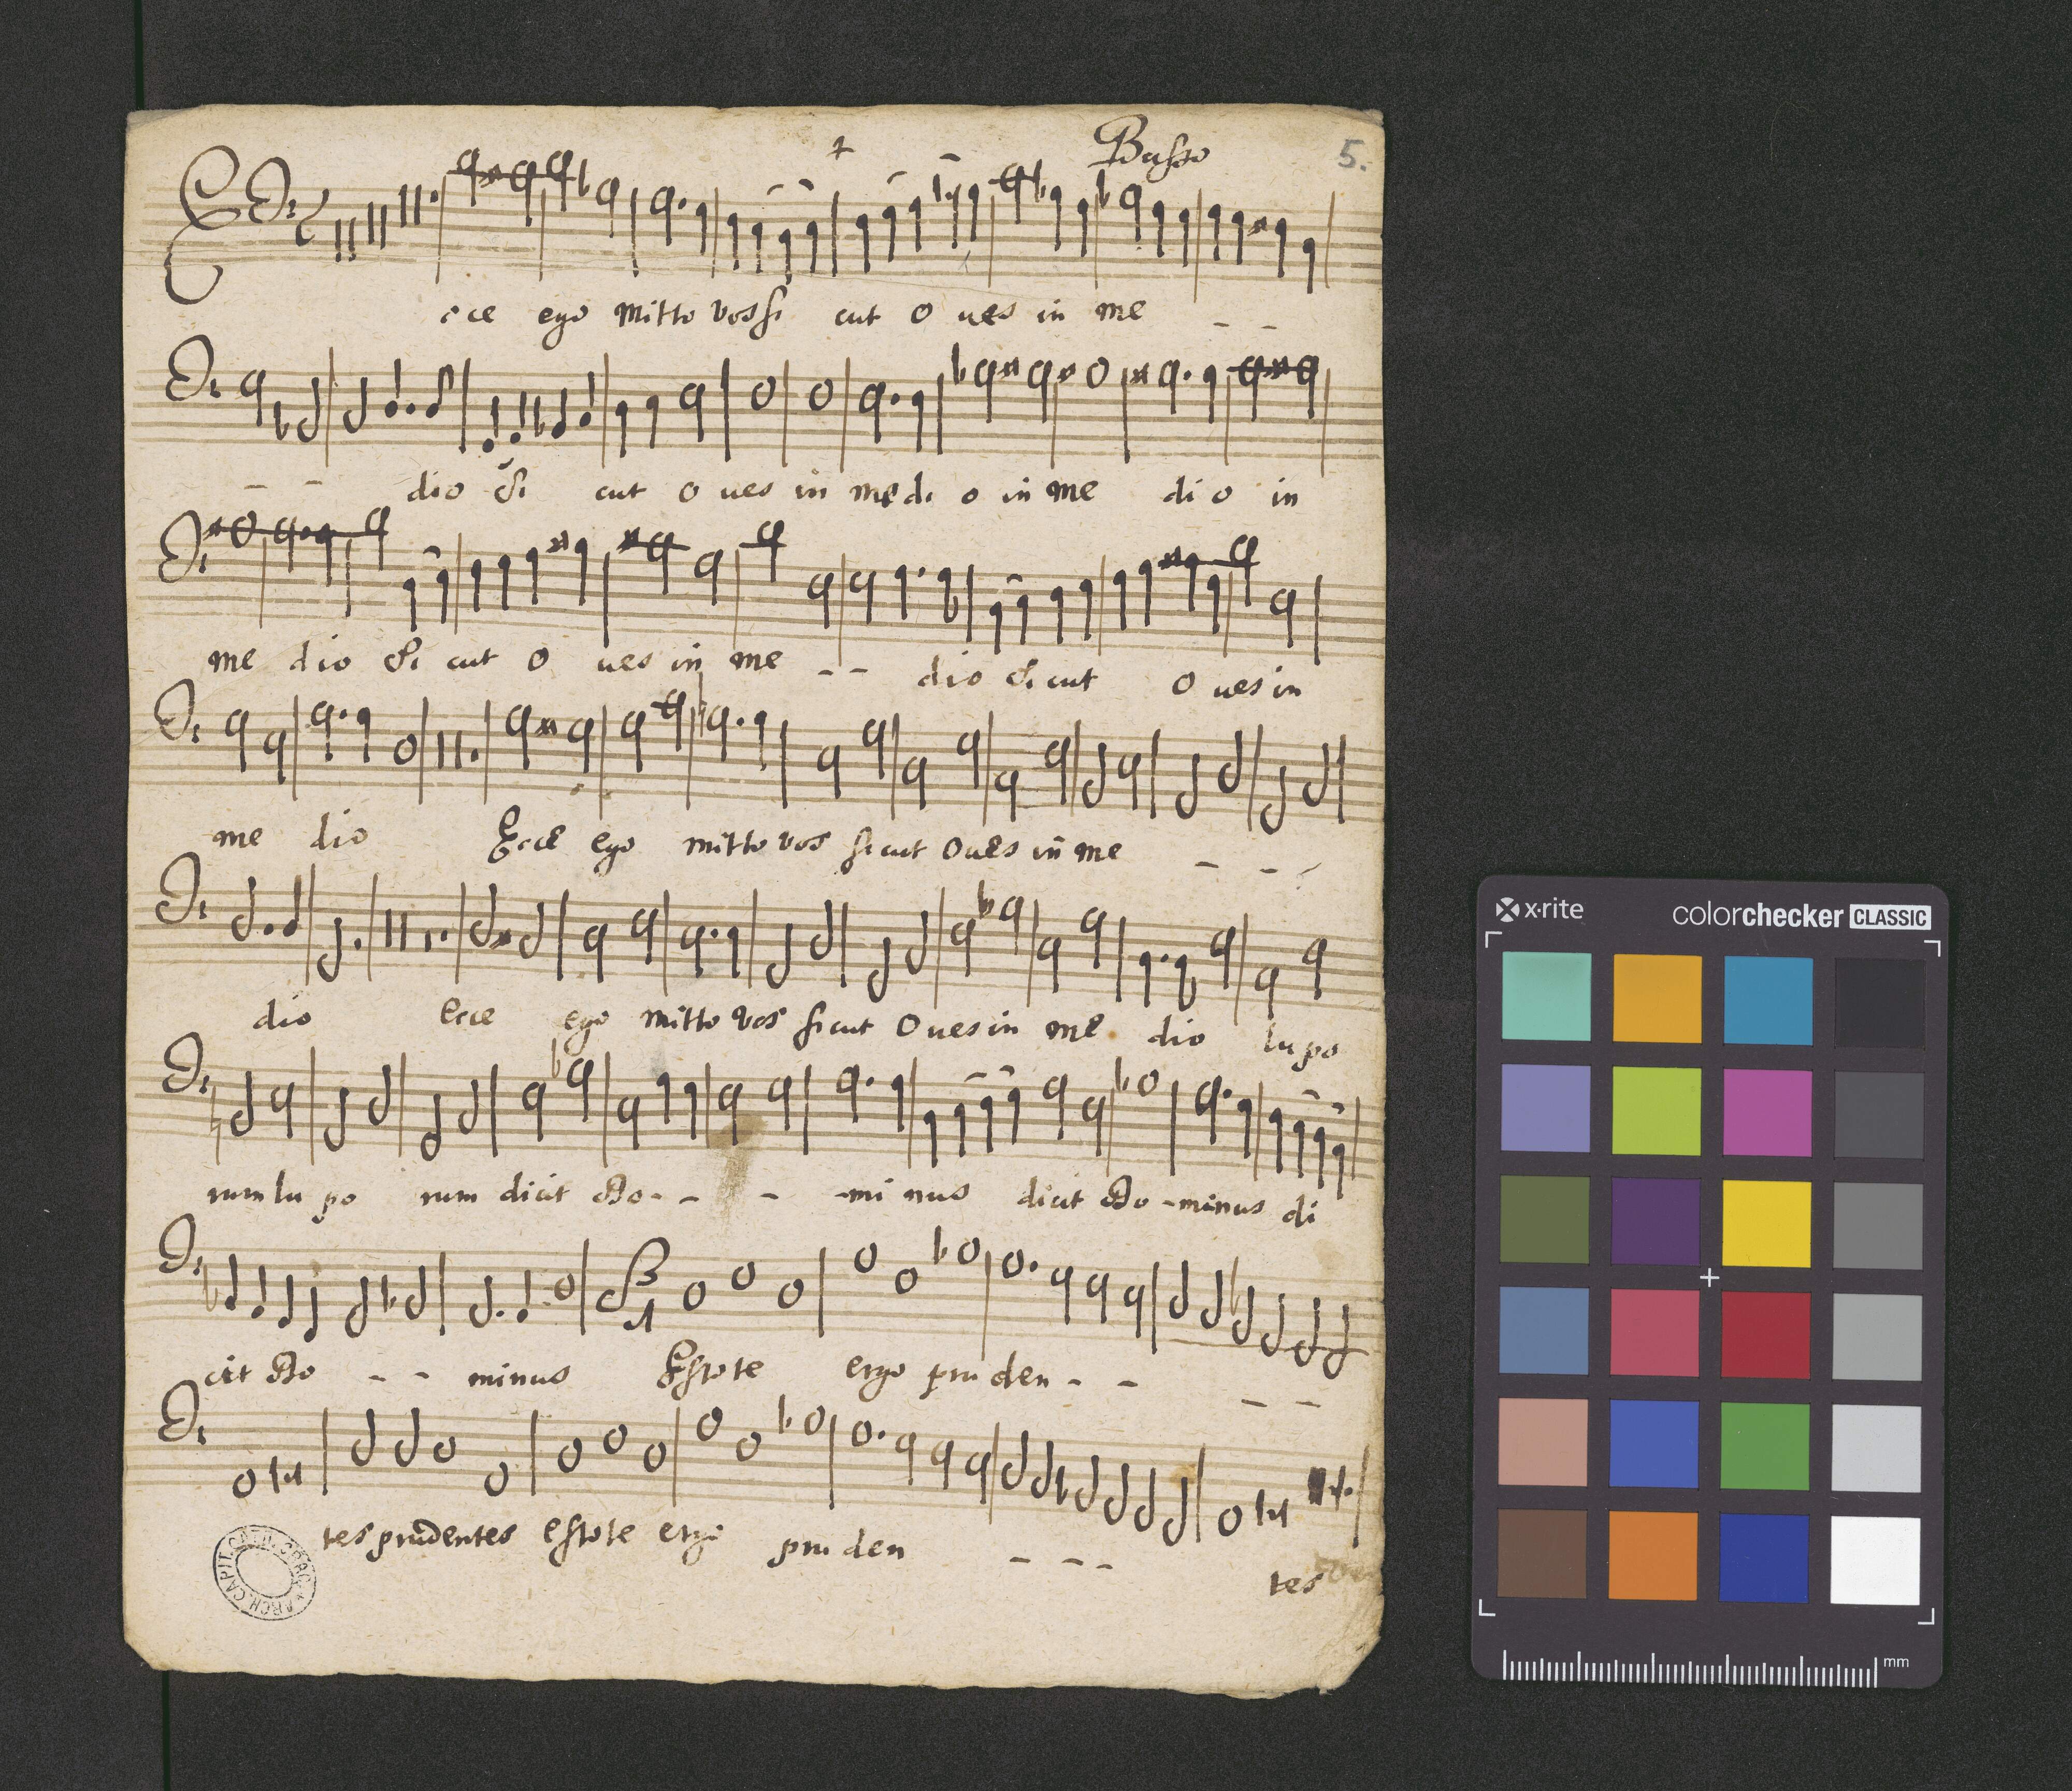 Basso
5.
Ecce ego mitto vos si cut o ves in me - -
- - dio Si cut o ues in medi o in me di o in
me dio Si cut o ues in me - - dio Si cut o ues in
me dio Ecce ego mitto vos sicut oues in me - - -
dio ecce ego mitto vos sicut oues in me dio lupo
rum lu po rum dicit Do - - - - mi nus dicit Do - minus di
cit Do - - minus Estote ergo pru den - - - -
3
1
tes prudentes estote ergo pru den - - - tes
ARCH. CAPIT.
x-rite
colorchecker CLASSIC
mm